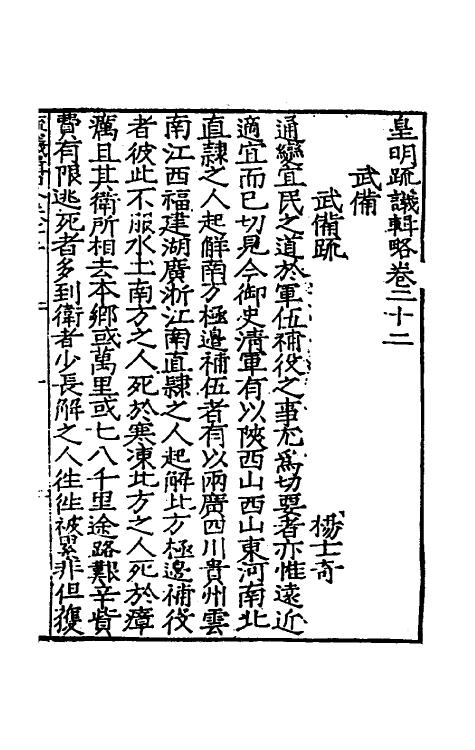 皇明疏議輯略卷二十二
武備
武備疏
楊士奇
通變宜民之道於軍伍補役之事尤為切要者亦惟遠近
適宜而已切見今御史清軍有以陝西山西山東河南北
直隸之人起觧南方極邊補伍者有以兩廣四川貴州雲
南江西福建湖廣浙江南直隸之人起解北方極邊補役
者彼此不服水土南方之人死於寒凍北方之人死於瘴
癘且其衛所相去本鄉或萬里或七八千里途路艱辛貲
費有限逃死者多到衛者少長解之人徃徃被累非但復